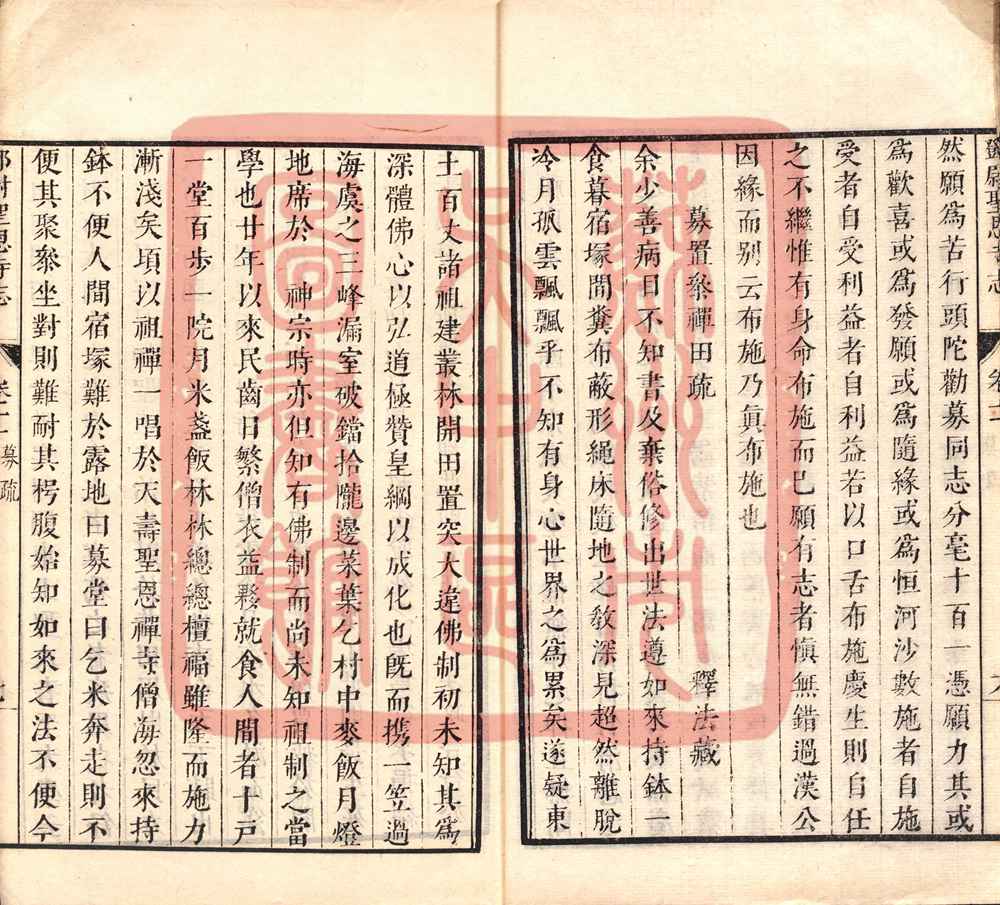 鄧尉聖恩寺志
然願爲苦行頭陀勸募同志分毫十百一憑願力其或
爲歡喜或爲發願或爲隨緣或爲恒河沙數施者自施
受者自受利益者自利益若以口舌布施慶生則自任
之不繼惟有身命布施而已願有志者愼無錯過漢公
因緣而别云布施乃眞布施也
募置叅禪田疏 釋法藏
余少善病日不知書及棄俗修出世法遵如來持鉢一
食暮宿塚間糞布蔽形繩床隨地之敎深見超然離脫
冷月孤雲飄飄乎不知有身心世界之爲累矣遂疑東
土百丈諸祖建叢林開田置突大違佛制初未知其爲
深體佛心以弘道極贊皇綱以成化也旣而携一笠過
海虞之三峰漏室破鐺拾隴邊菜葉乞村中麥飯月燈
地席於 神宗時亦但知有佛制而尚未知祖制之當
學也廿年以來民齒日繁僧衣益夥就食人間者十戸
一堂百步一院月米盞飯林林總總檀福雖隆而施力
漸淺矣頃以祖禪一唱於天壽聖恩禪寺僧海忽來持
鉢不便人間宿塚難於露地曰募堂曰乞米奔走則不
便其聚衆坐對則難耐其枵腹始知如來之法不便今
聖恩寺志 募疏